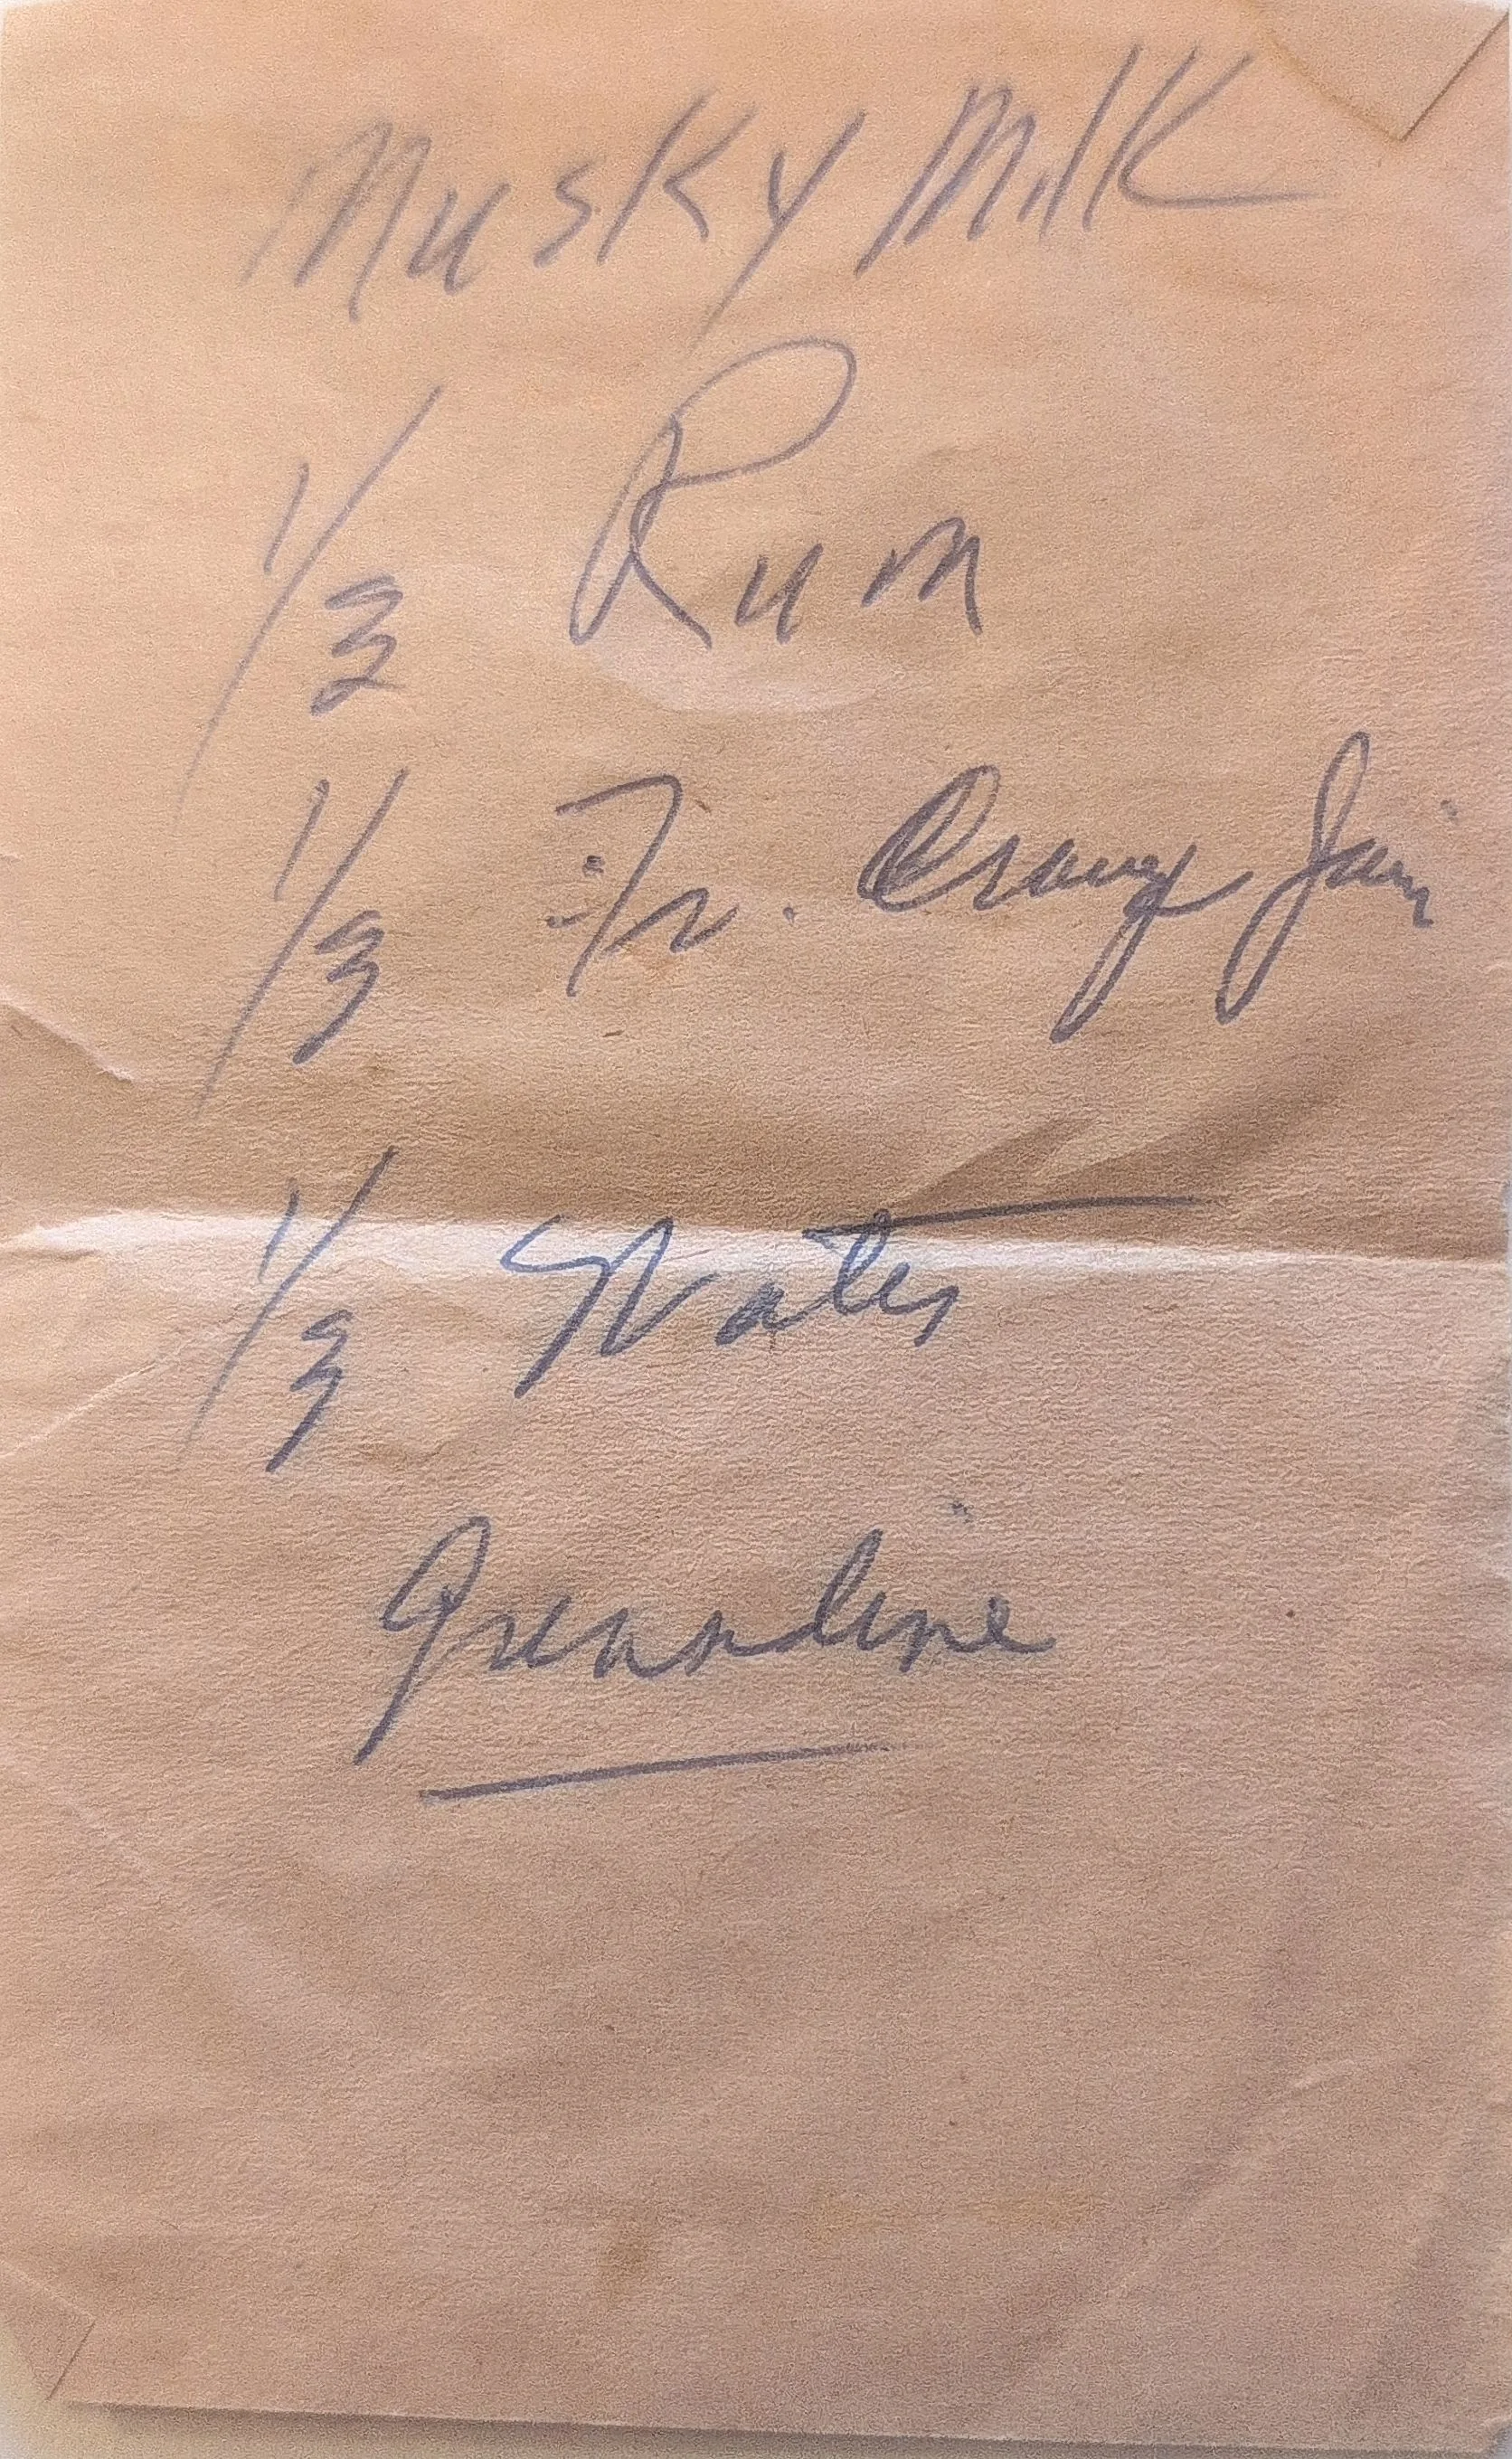 Musky Milk
1/3 Rum
1/3 Fr. Orange Juic
1/3 Water
Grenadine